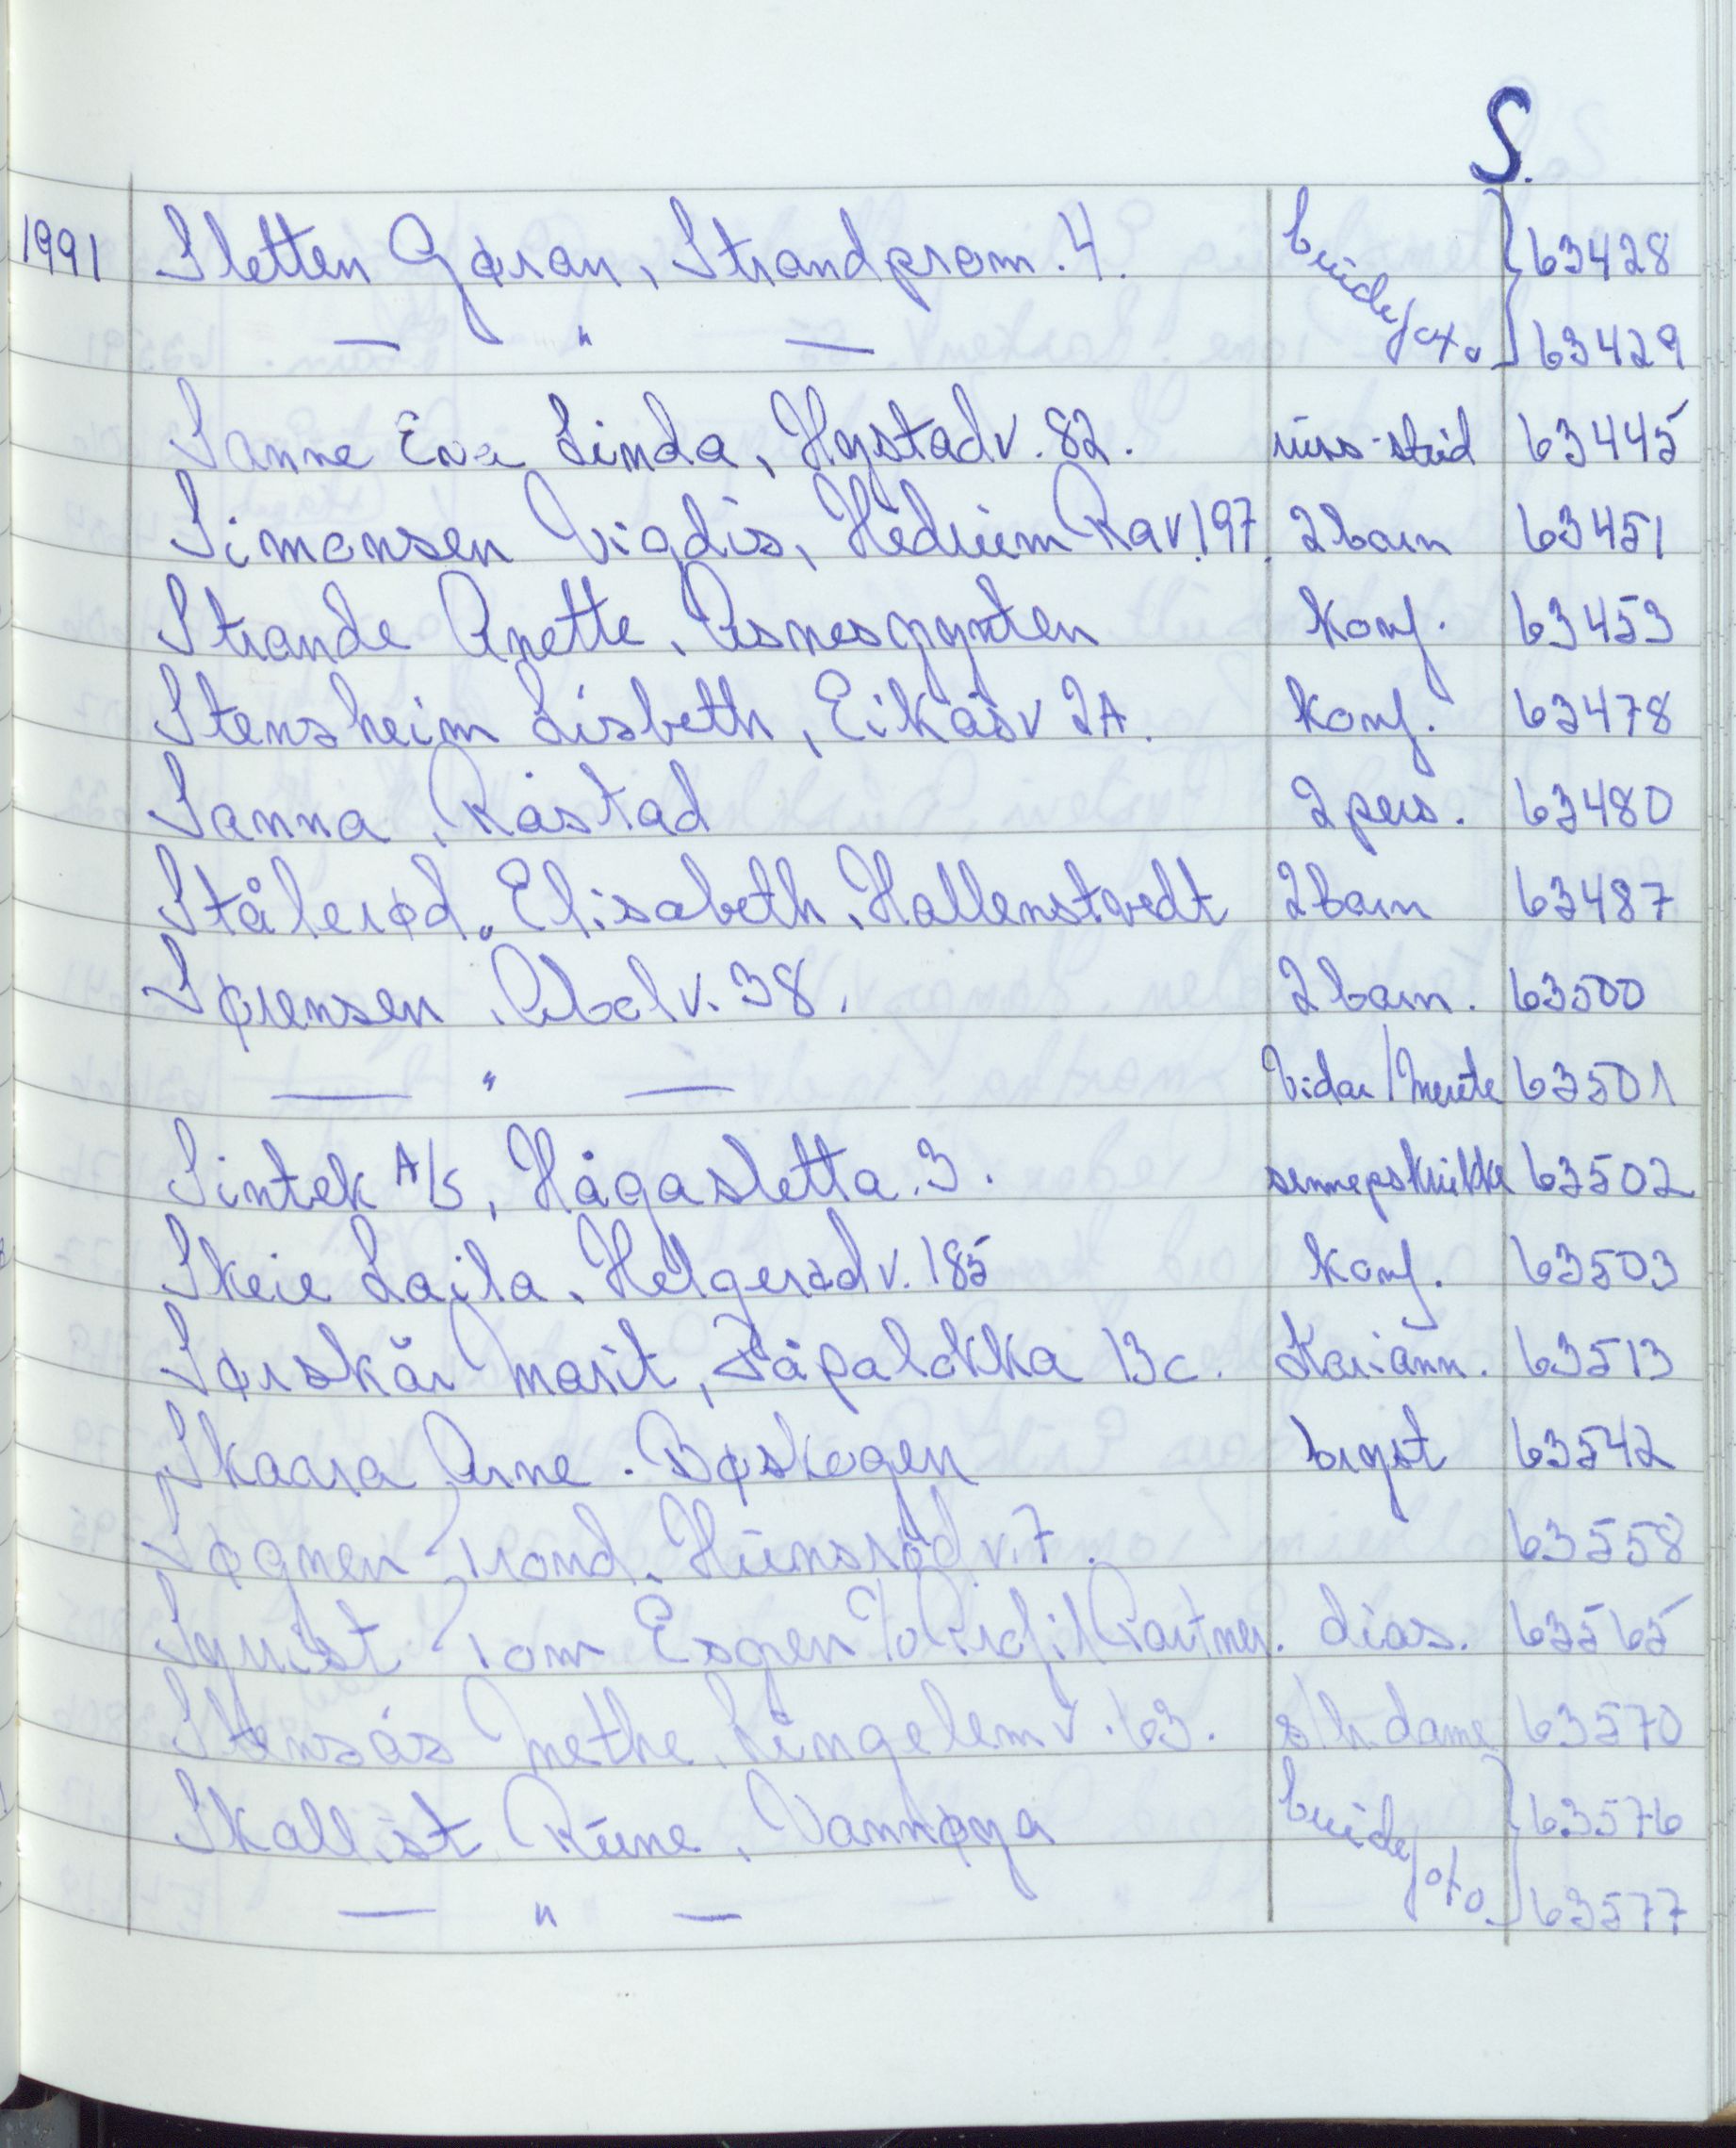 S.
1991 Sletten Gøran, Strandprom. 4. brudefoto 63428
— " — 63429
Sanne Eva Linda, Hystadv. 82. russ-stud 63445
Simonsen Vigdis, Hedrum Rav. 197. 2 barn 63451
Strande Anette, Asnesgynten konf. 63453
Stensheim Lisbeth, Eikåsv 2A. konf. 63478
Sanna, Råstad 2 pers. 63480
Stålerød, Elisabeth, Hallenstvedt 2 barn 63487
Sørensen, Ubolv. 38. 2 barn. 63500
— " — Vidar/Merete 63501
Sintek A/S, Hågasletta 3. sennepskrukke 63502
Skeie Laila, Helgerødv. 185 konf. 63503
Sørskår Marit, Råpaløkka 13c. Mariann. 63513
Skaara Arne. Bøskogen bryst 63542
Søgnen Trond. Hunsrødv. 7. 63558
Tom Espen Partner. dias. 63565
Stensås Methe, Lingelemv. 63. s/h. dame 63570
Skallist Rune, Vannøya brudefoto 63576
— " — 63577